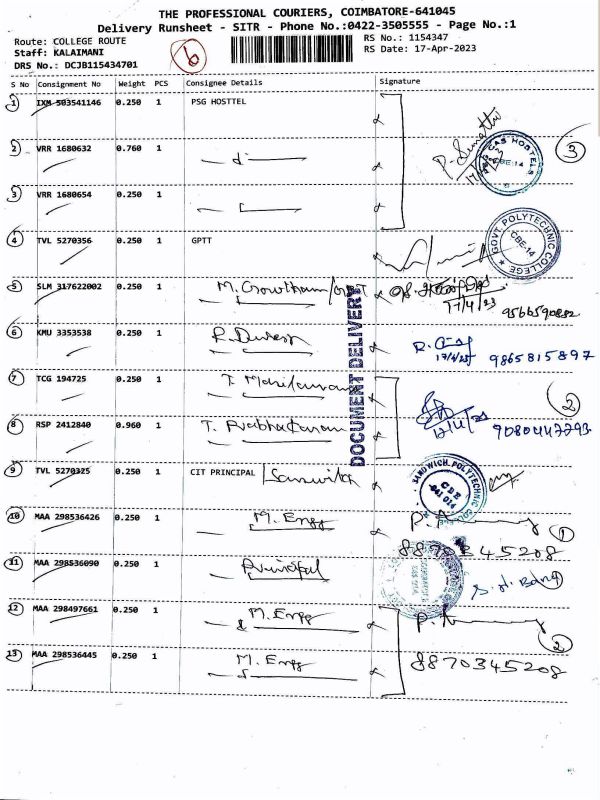 THE PROFESSIONAL COURIERS, COIMBATORE-641045
Delivery Runsheet - SITR - Phone No.:0422-3505555 - Page No.:1
Route: COLLEGE ROUTE
RS No.: 1154347
Staff: KALAIMANI
RS Date: 17-Apr-2023
DRS No.: DCJB115434701
6
S No Consignment No Weight PCS Consignee Details Signature
1 IXM 503541146 0.250 1 PSG HOSTTEL
2 VRR 1680632 0.760 1
3
3 VRR 1680654 0.250 1
4 TVL 5270356 0.250 1 GPTT
GOVT. POLYTECHNIC COLLEGE CBE-14
5 SLM 317622002 0.250 1 M. Gowtham
17/4/23
DOCUMENT DELIVERY
6 KMU 3353538 0.250 1
17/4/23 9865815897
7 TCG 194725 0.250 1
2
8 RSP 2412840 0.960 1 T. Prabhakaran
9 TVL 5270325 0.250 1 CIT PRINCIPAL
SANDWICH POLYTECHNIC CBE 641 014
10 MAA 298536426 0.250 1 M. Engg
8870345208 1
11 MAA 298536090 0.250 1 Principal
12 MAA 298497661 0.250 1 M. Engg
2
13 MAA 298536445 0.250 1 M. Engg
8870345208